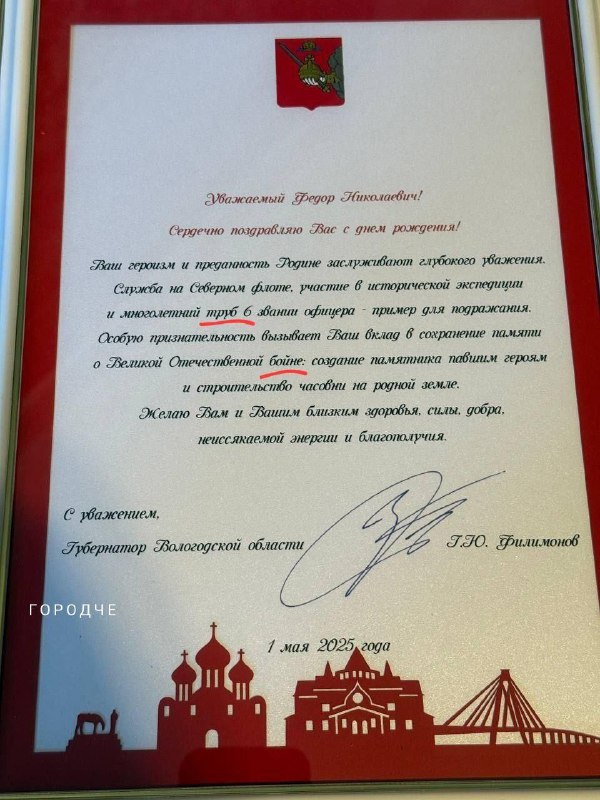 Уважаемый Федор Николаевич!
Сердечно поздравляю Вас с днем рождения!
Ваш героизм и преданность Родине заслуживают глубокого уважения.
Служба на Северном флоте, участие в исторической экспедиции
и многолетний труб 6 звании офицера - пример для подражания.
Особую признательность вызывает Ваш вклад в сохранение памяти
о Великой Отечественной бойне: создание памятника павшим героям
и строительство часовни на родной земле.
Желаю Вам и Вашим близким здоровья, силы, добра,
неиссякаемой энергии и благополучия.
С уважением,
Губернатор Вологодской области Г.Ю. Филимонов
ГОРОДЧЕ
1 мая 2025 года